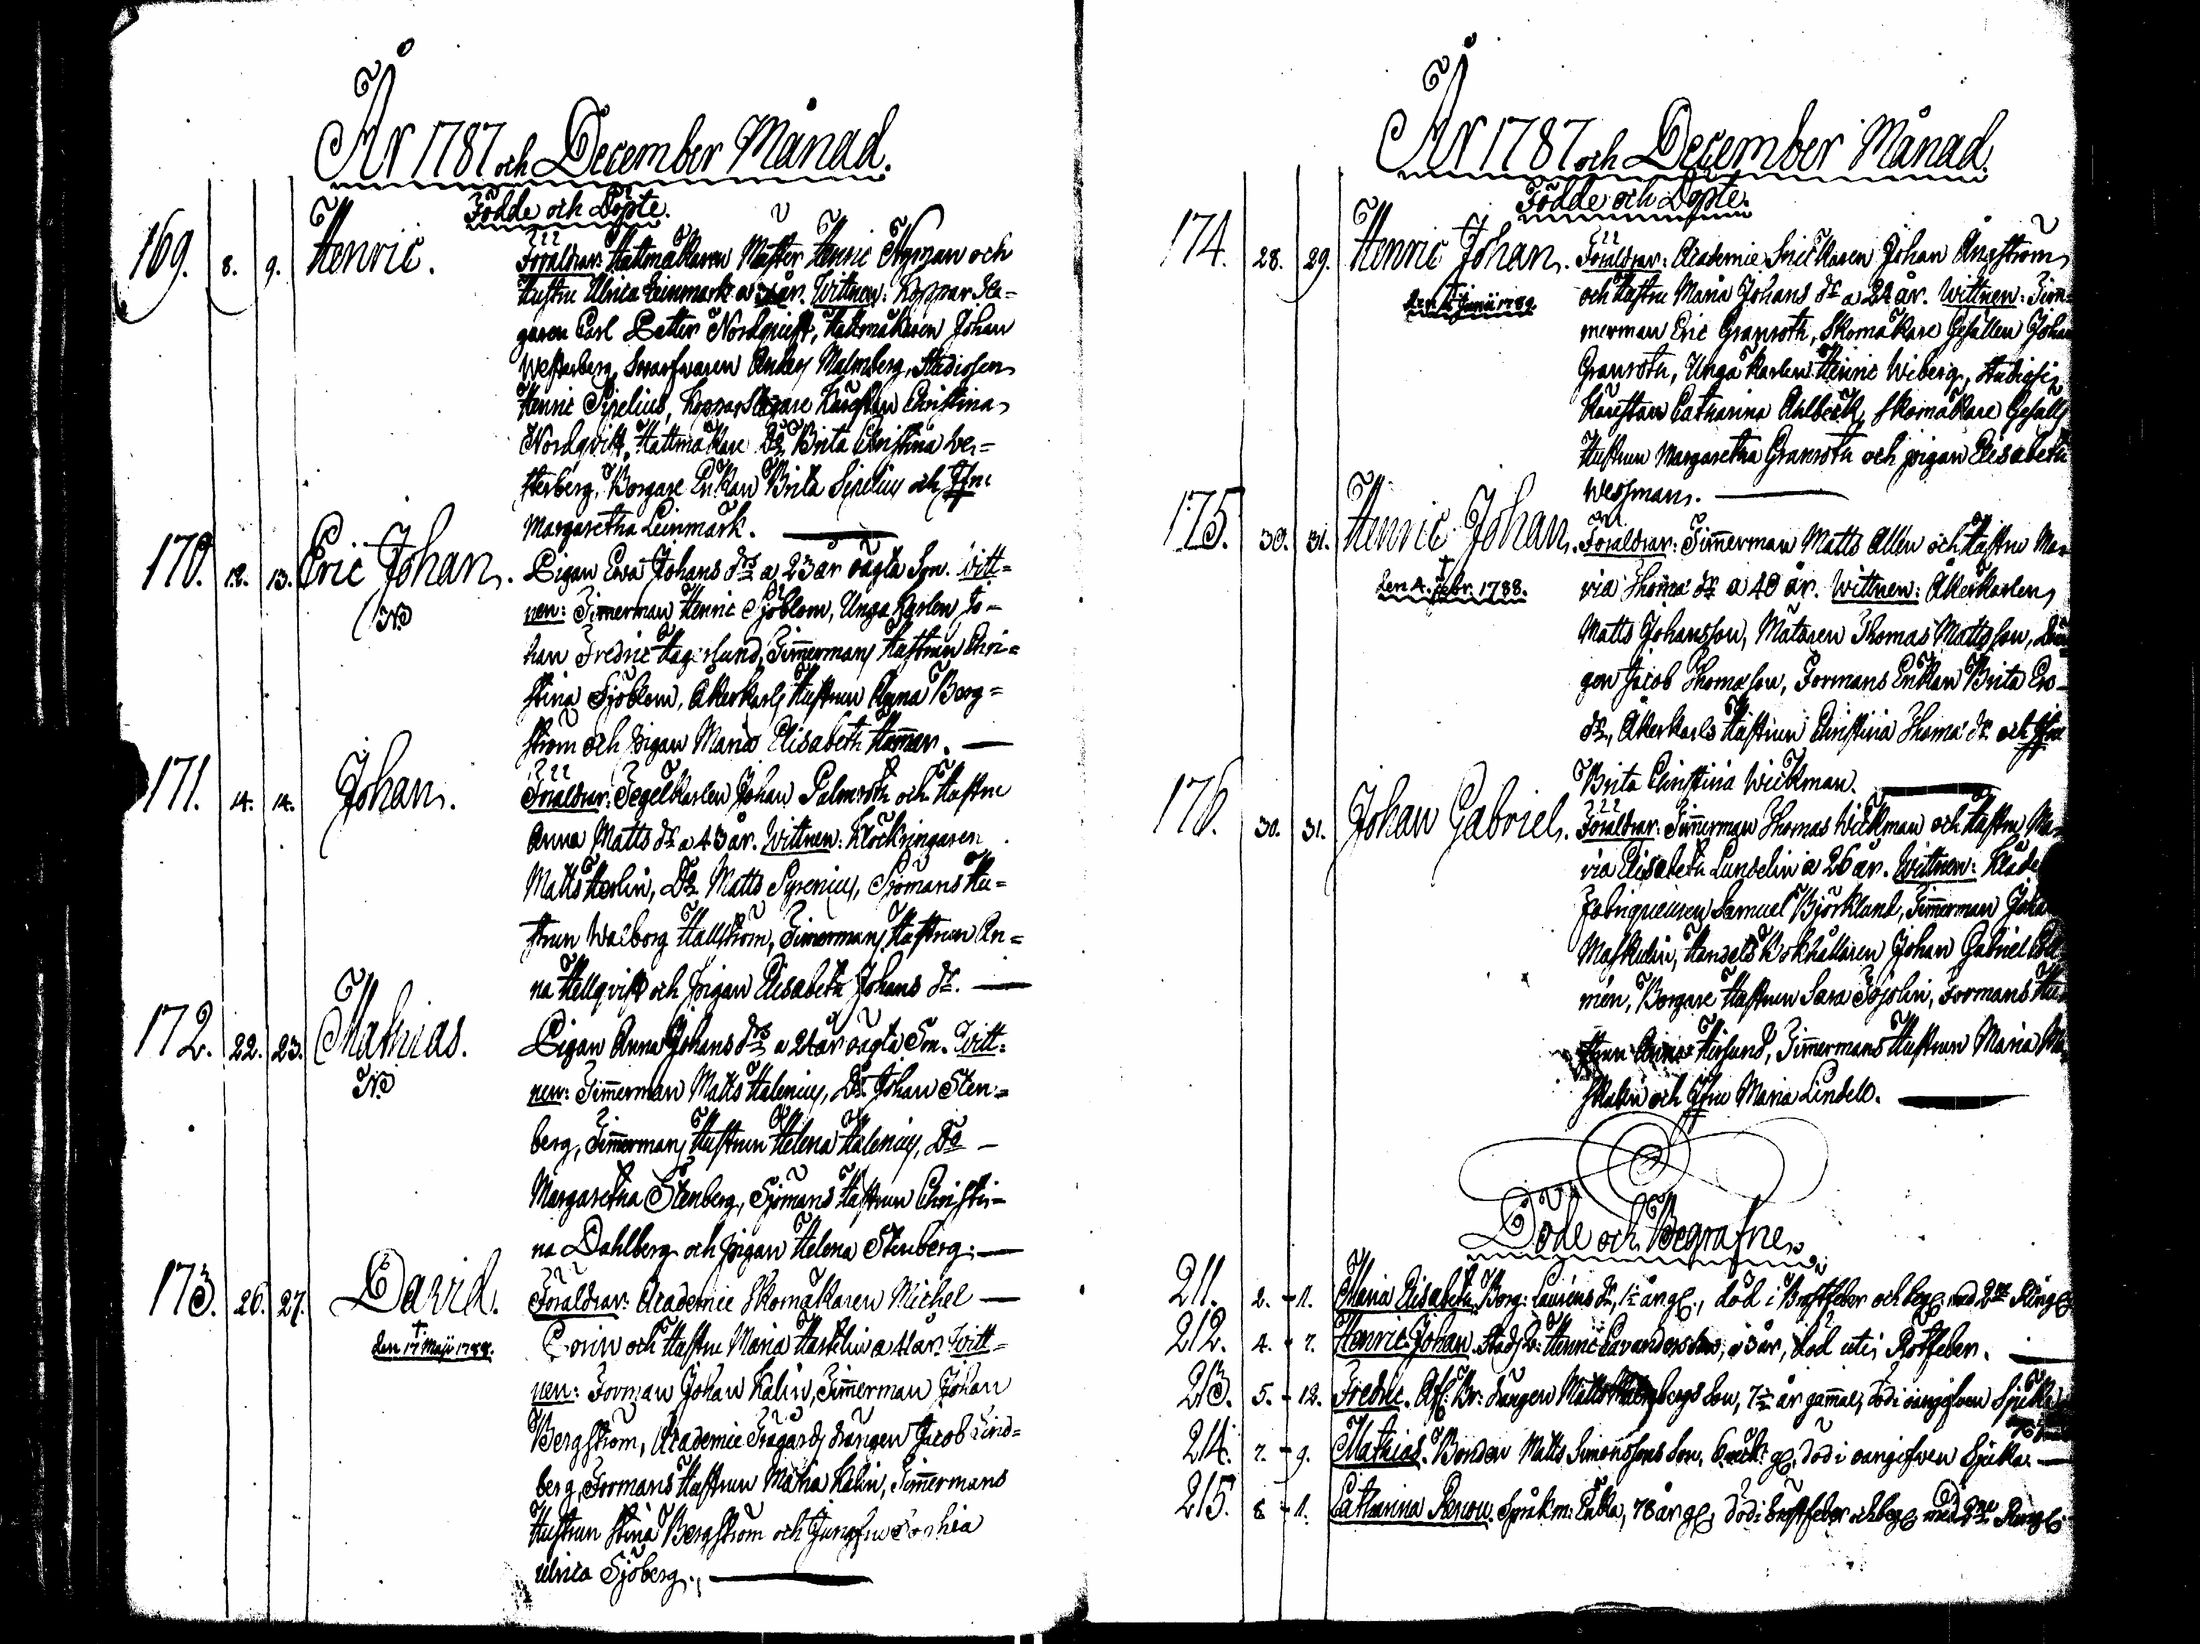 År 1787 och December Månad.
Födde och Döpte.
169. 8. 9. Henric. Föräldrar: Hattmakaren Mäster Henric Nyman och
Hustru Ulrica Leinmark a år. Wittnen: Koppar Sla-
garen Carl Petter Nordqvist, Hattmakaren Johan
Westerberg, Swarfwaren Anders Malmberg, Studiosen
Henric Sirelius, Kopparslagare Hustrun Christina
Nordqvist, Hattmakare Do Brita Christina We-
sterberg, Borgare Enkan Brita Sirelius och Jfn:
Margaretha Leinmark.
170. 12. 13. Eric Johan. Pigan Ewa Johans drs a 23 år oägta Son. Witt-
No nen: Timmerman Henric Sjöblom, Unga Karlen Jo-
han Fredric Hagerlund, Timmermans Hustrun Chri-
stina Sjöblom, Åkerkarls Hustrun Anna Berg-
ström och pigan Maria Elisabeth Hamman.
171. 14. 14. Johan. Föräldrar: Segelkarlen Johan Palmroth och Hustru
Anna Matts dr a 43 år. Wittnen: Klockringaren
Matts Herlin, Do Matts Syrenius, Sjömans Hu-
strun Walborg Hallström, Timmermans Hustrun An-
na Hellqvist och pigan Elisabeth Johans dr.
172. 22. 23. Mathias. Pigan Anna Johans drs a år oägta Son. Witt-
No nen: Timmerman Matts Halenius, Do Johan Sten-
berg, Timmermans Hustrun Helena Halenius, Do
Margaretha Stenberg, Sjömans Hustrun Christi-
na Dahlberg och pigan Helena Stenberg.
173. 26. 27. David. Föräldrar: Academie Skomakaren Michel
den 17 Maji 1788. och Hustru Maria a 41 år. Witt-
nen: Forman Johan Kalin, Timmerman Johan
Bergström, Academie Trägårds drängen Jacob Lind-
berg, Formans Hustrun Maria Kalin, Timmermans
Hustrun Stina Bergström och Jungfru Sophia
Ulrica Sjöberg.
År 1787 och December Månad.
Födde och Döpte.
174. 28. 29. Henric Johan. Föräldrar: Academie Snickaren Johan Ångström
den Junii 1789. och Hustru Maria Johans dr a år. Wittnen: Tim-
merman Eric Granroth, Skomakare Gesällen Johan
Granroth, Unga Karlen Henric Wiberg, Studiosi
Käreston Catharina Ahlbeck, Skomakare Gesälls
Hustrun Margaretha Granroth och pigan Elisabeth
Wessman.
175. 30. 31. Henric Johan. Föräldrar: Timmerman Matts Allen och Hustru Ma-
den 4. Febr. 1788. ria Thoma dr a 40 år. Wittnen: Åkerkarlen
Matts Johansson, Mätaren Thomas Mattsson, Drän-
gen Jacob Thomasson, Formans Enkan Brita Ers-
dr, Åkerkarls Hustrun Christina Thoma dr och Jfru
Brita Christina Wickman.
176. 30. 31. Johan Gabriel. Föräldrar: Timmerman Thomas Wickman och Hustru Ma-
ria Elisabeth Lundelin a 26 år. Wittnen: Kläde
Fabriqueuren Samuel Björklund, Timmerman Joha
Maskulin, Handels Bokhållaren Johan Gabriel
mén, Borgare Hustrun Sara Töjslin, Formans Hu-
strun Hirlund, Timmermans Hustrun Maria Ma-
skulin och Jfru Maria Lindell.
Döde och Begrafne.
211. 2. - 1. Maria Elisabeth, Borg: Lauréns dr, död i Bröstfeber och begr. med Ringg.
212. 4. - 7. Henric Johan. Henric Lavanders son, 3 år, död uti Rötfeber.
213. 5. - 12. Fredric. drängen Matts son, 7 år gammal, död i oangifven Sjuk
214. 7. - 9. Mathias. Bonden Matts Simonssons Son, död i oangifven Sjukd.
215. 8 - 1. Catharina Enka, 78 år gl. död i bröstfeber och begr. med Ringg.